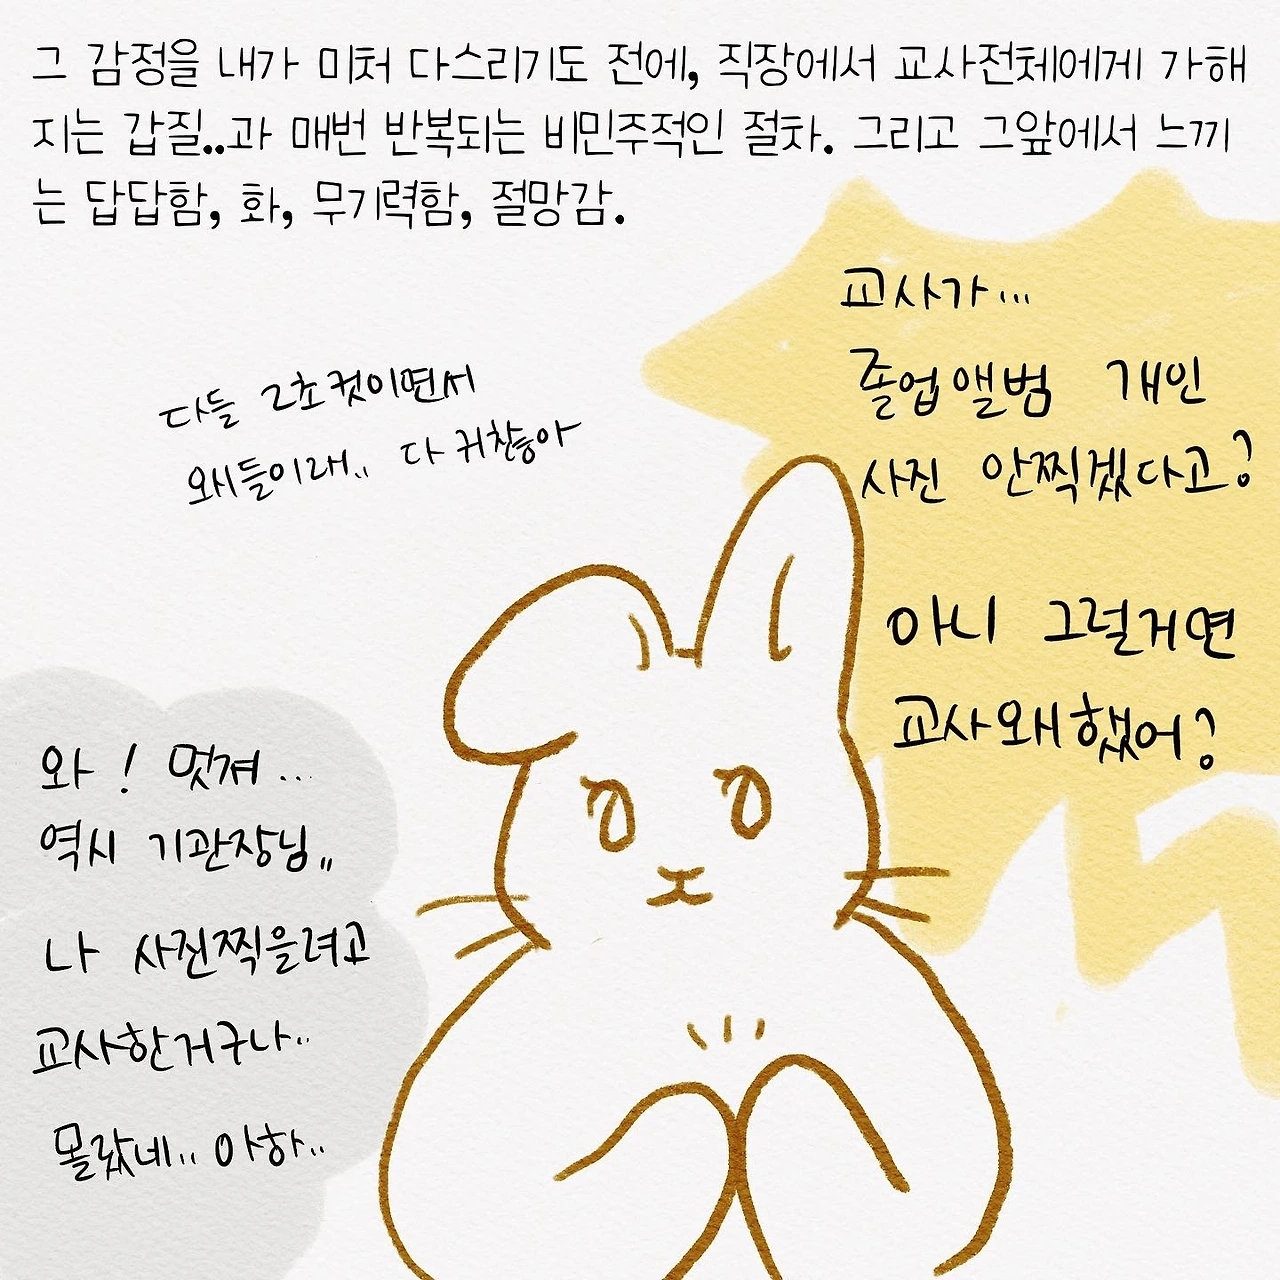 그 감정을 내가 미처 다스리기도 전에, 직장에서 교사전체에게 가해
지는 갑질..과 매번 반복되는 비민주적인 절차. 그리고 그앞에서 느끼
는 답답함, 화, 무기력함, 절망감.
교사가...
졸업앨범 개인
사진 안찍겠다고?
아니 그럴거면
교사왜했어?
다들 2초컷이면서
왜들이래.. 다 귀찮아
와! 멋져...
역시 기관장님,,
나 사진찍을려고
교사한거구나..
몰랐네.. 아하..